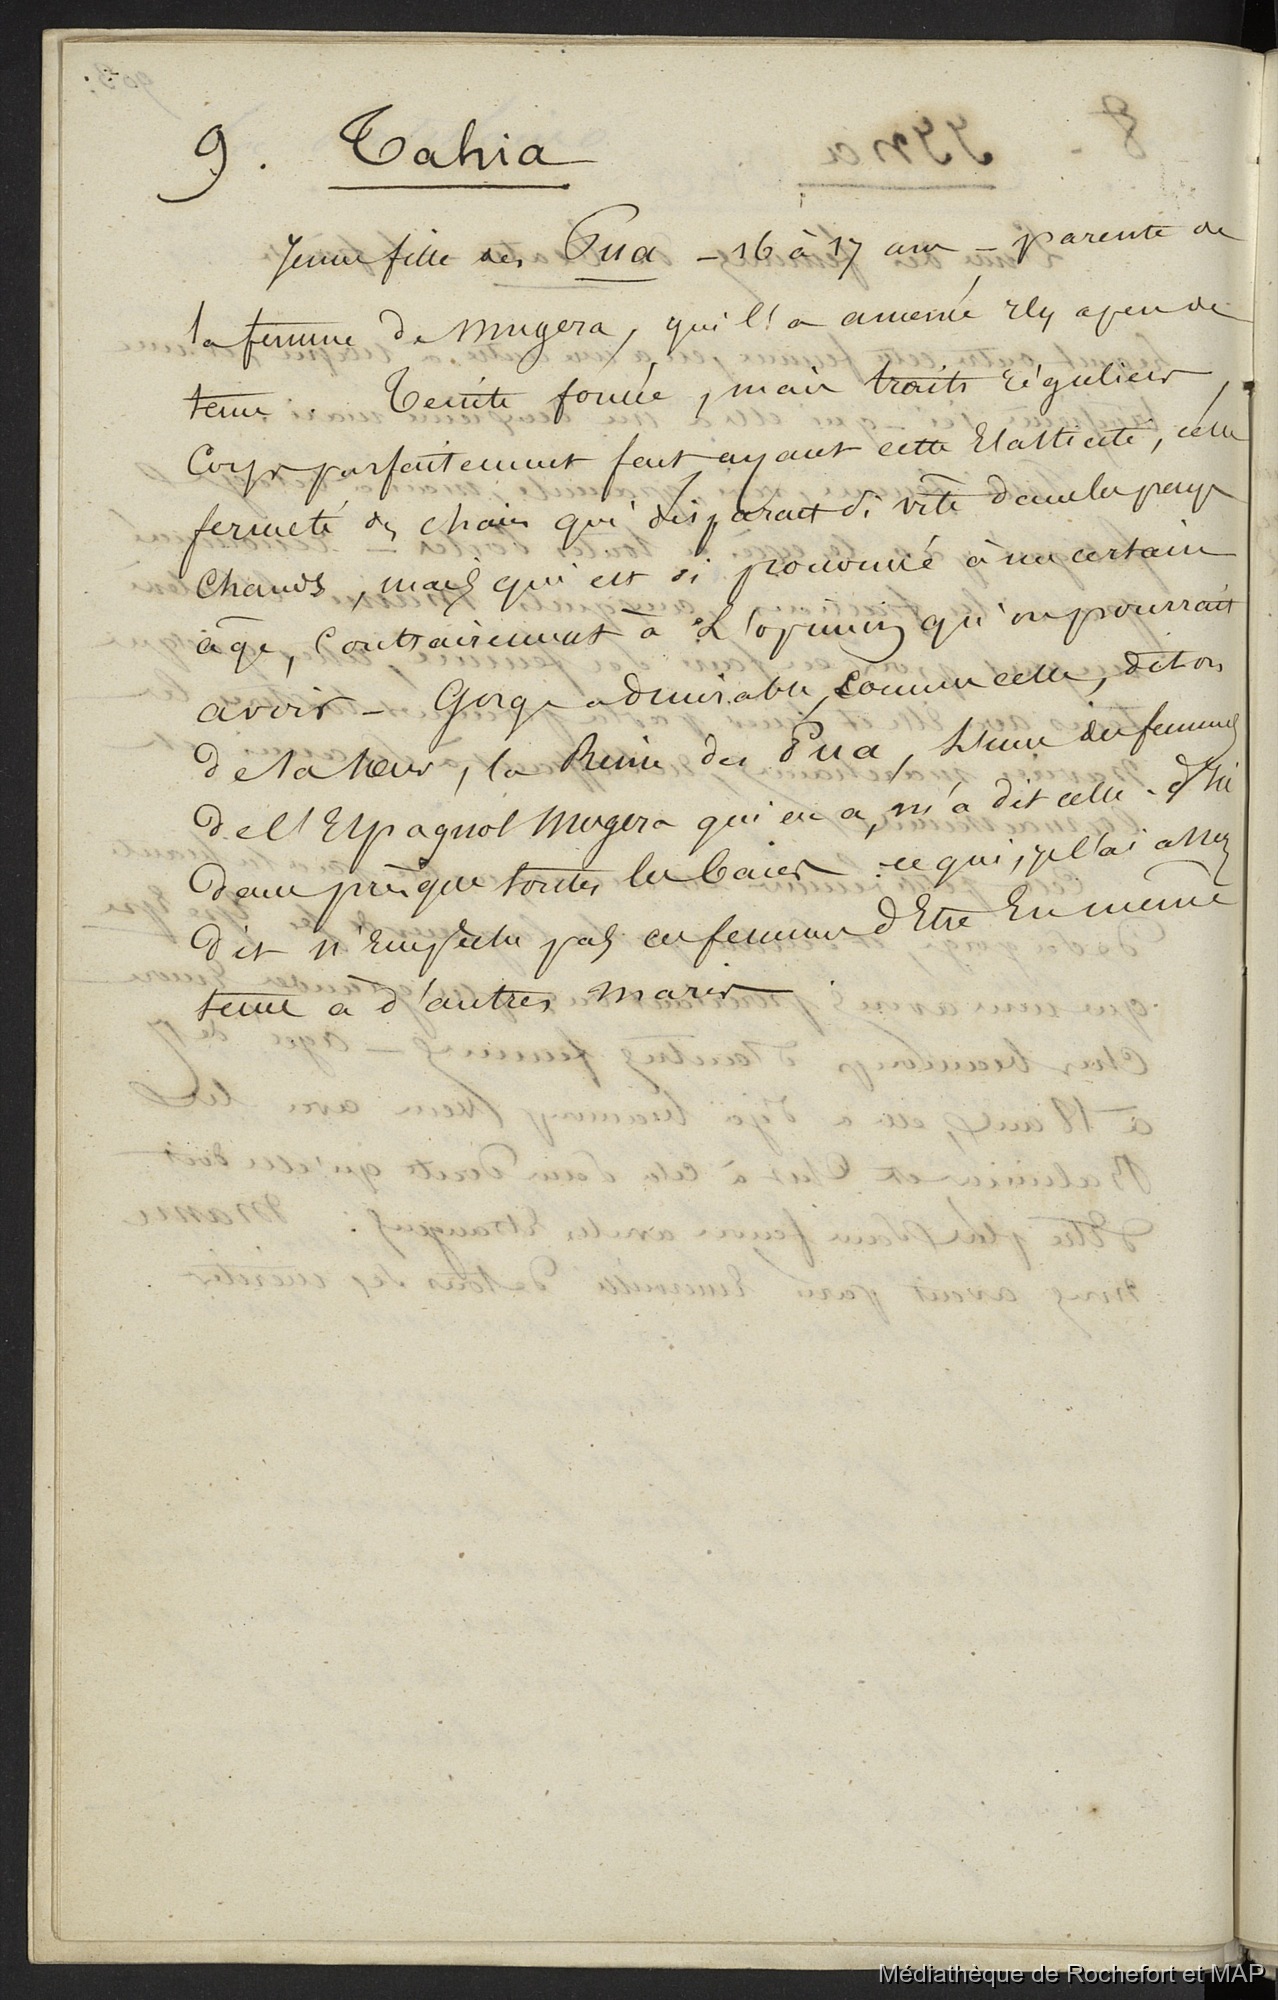 9. Tahia
Jeune fille des Pua – 16 à 17 ans – parente de
la femme de Mugera, qui l'a amenée il y a peu de
tems Teinte foncée, mais traits réguliers,
Corps parfaitement fait ayant cette Elasticité, cette
fermeté des chairs qui disparait si vite dans les pays
Chauds, mais qui est si prononcé à un certain
âge, Contrairement à l'opinion qu'on pourrait
avoir – Gorge admirable, comme celle, dit on
de sa sœur, la Reine des Pua, l'une des femmes
de l'Espagnol Mugera qui en a, m'a dit celle d'ici
dans presque toutes les baies ce qui, je l'ai assez
dit n'Empêche pas ces femmes d'Etre En même
tems à d'autres maris
Médiathèque de Rochefort et MAP